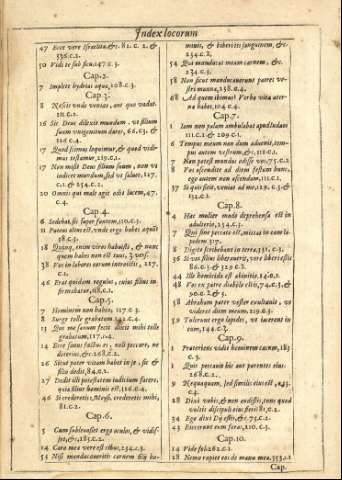 Index locorum
47 Ecce vere Israelita, &c. 81. c. 2. &
536. c. 2.
50 Vidi te sub ficu, 147. c. 3.
Cap. 2.
7 Implete hydrias aqua, 108. c. 3.
Cap. 3.
8 Nescis unde veniat, aut quo vadat.
16 Sic Deus dilexit mundum, ut filium
suum unigenitum daret, 66, 63. &
116. c. 4.
17 Quod scimus loquimur, & quod vidimus
testamur, 119. c. 1.
17 Non misit Deus filium suum, ut
iudicet mundum, sed ut salvet, 127.
c. 1. & 254. c. 2.
20 Omnis qui male agit odit lucem, 47.
c. 4.
Cap. 4.
6 Sedebat, sic super fontem, 110. c. 3.
11 Puteus altus est, unde ergo habes aquā?
58. c. 3.
18 Quinq, enim viros habuisti, & nunc
quem habes non est tuus, 3.
38 Vos in labores eorum introistis, 227.
c. 1.
46 Erat quidam regulus, cuius filius infirmabatur,
68. c. 1.
Cap. 5.
7 Hominem non habeo, 117. c. 3.
8 Surge tolle grabatum
13 Qui me sanum fecit dixit mihi tolle
grabatum, 117. c. 4.
14 Ecce sanus factus es, noli peccare, ne
deterius, &c. 268. c. 2.
26 Sicut pater vitam habet in se, sic &
filio dedit, 84. c. 2.
27 Dedit illi potestatem iudicium facere,
quia filius hominis est, 116. c. 4.
46 Si crederetis Moysi, crederetis mihi,
81. c. 2.
Cap. 6.
5 Cum sublevasset ergo oculos, & vidisset,
&c. 185. c. 2.
54 Caro mea vere est cibus, 234. c. 3.
54 Nisi manducaveritis carnem filij hominis,
& biberitis sanguinem, &c.
234. c. 2.
54 Qui manducat meam carnem, &c.
234. c. 3.
58 Non sicut manducaverunt patres vestri
manna, 238. c. 4.
68 Ad quem ibimus? Verba vitæ æternæ
habes, 104. c. 4.
Cap. 7.
1 Iam non palam ambulabat apud Iudaos
111. c. 1. & 209. c. 1.
6 Tempus meum non dum advenit, tempus
autem vestrum, &c. 111. c. 1.
7 Non potest mundus odisse vos, 75. c. 2.
8 Vos ascendite ad diem festum hunc,
ego autem non ascendam, 111. c. 1.
37 Si quis sitit, veniat ad me, 129. c. 3. &
134. c. 2.
Cap. 8.
4 Hæc mulier modo deprehensa est in
adulterio, 254. c. 1.
7 Qui sine peccato est, mittat in eam lapidem
317.
8 Digito scribebant in terra, 351. c. 3.
36 Si vos filius liberaverit, vere liberi estis
86. c. 3. & 329. c. 2.
44 Ille homicida est ab initio, 140. c. 1.
48 Vos ex patre diabolo estis, 74. c. 3. &
90. c. 2. & 3.
58 Abraham pater vester exultavit, ut
videret diem meum, 219. c. 3.
59 Tulerunt ergo lapides, ut iacerent in
eum, 144. c. 3.
Cap. 9.
1 Præteriens vidit hominem cæcum, 183
c. 3.
1 Quis peccavit hic aut parentes eius.
268. c. 2.
9 Nequaquam, sed similis eius est, 243.
c. 4.
28 Dixi vobis, & non audistis, num quid
vultis discipuli eius fieri? 81. c. 2.
34 Ego dixi Dij estis, &c. 75. c. 2.
43 Eiecerunt eum foras, 210. c. 3.
Cap. 10.
14 Vide fol. 262. c. 1.
28 Nemo rapiet eas de manu mea. 353. c. 1
Cap.